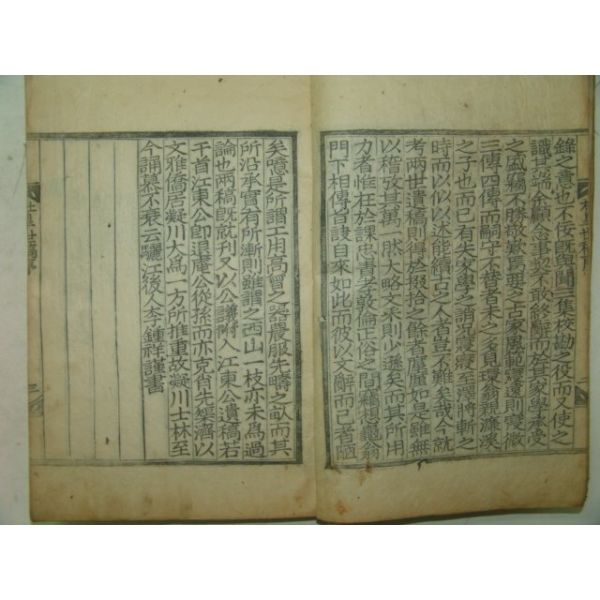 錄之意也不佞旣與聞二集校勘之役而又使之
識其端余顧念事契不敢終辭而於其家學承受
之盛竊不勝欽歎焉要之古家風範寖遠則寖微
三傳四傳而嗣守文者者未之多見環翁親濂溪
之子也而已有失家學之誚况寖寖至澤將斬之
時而以似以述能續古之人者豈不難矣哉今就
考兩世遺稿則得於掇拾之餘者厪厪如是雖無
以稽攷其萬一然大略文采則少遜矣而其所用
力者惟在於課忠責孝敦倫正俗之間竊想龜翁
門下相傳旨訣自來如此而彼以文辭而已者陋
矣噫是所謂工用高曾之器農服先疇之畝而其
所沿承實有所漸則雖謂之西山一枝亦未爲過
論也兩稿旣就刊又以公講附入江東公遺稿若
干首江東公卽退庵公從孫而亦克肖先經濟以
文雅僑居凝川大爲一方所推重故凝川士林至
今誦慕不衰云驪江後人李鍾祥謹書